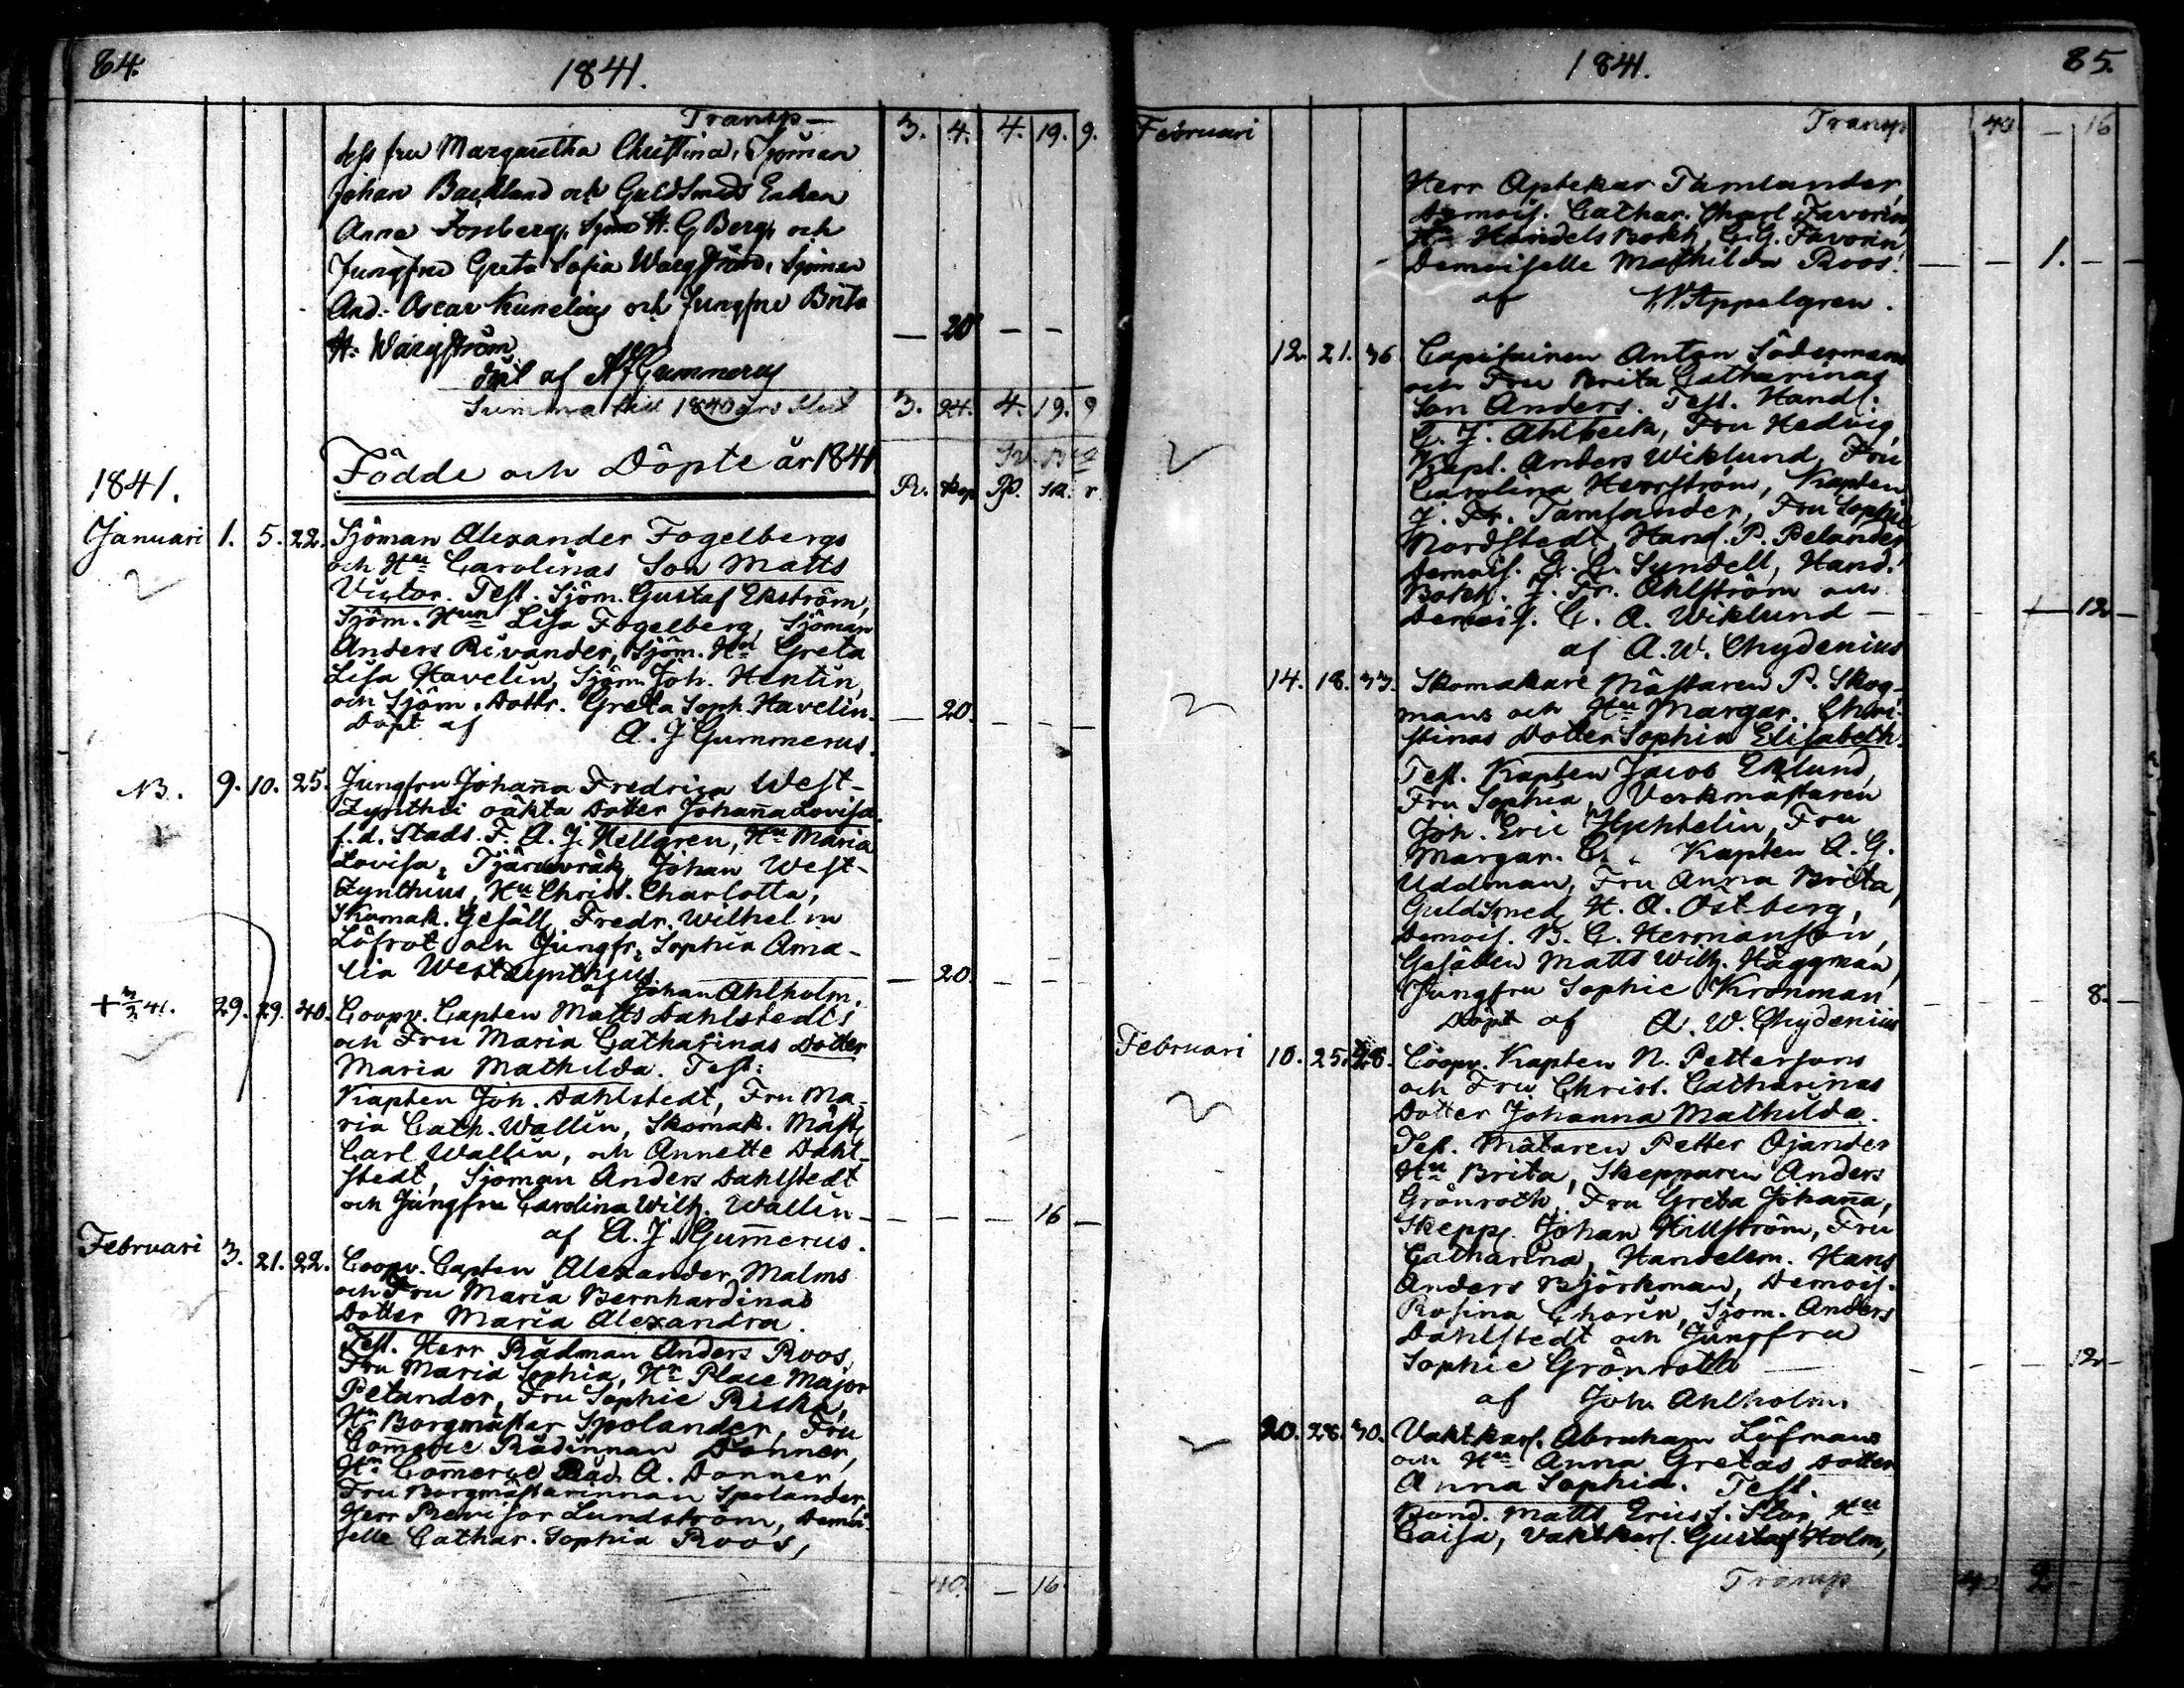 84.
1841.
Transp
3. 4. 4. 19. 9.
dess fru Margaretha Christina, Sjöman
Johan Backlund och GuldSmeds Enkan
Anna Fonberg, Sjöm H. G Berg, och
Jungfru Greta Sofia Wargström, Sjöman
And. Oscar Kunelius och Jungfru Brita
H. Wargström
— 20 — —
döpt af AJGummerus
Summa till 1840 års slut 3. 24. 4. 19. 9
Födde och Döpte år 1841
1841.
R. Kop R. sk. r
Januari 1. 5. 22. Sjöman Alexander Fogelbergs
och Hu Carolinas Son Matts
Victor. Test. Sjöm. Gustaf Ekström,
Sjöm. Hun Lisa Fogelberg, Sjöman
Anders Rivander, Sjöm. Hu Greta
Lisa Havelin, Sjöm. Joh. Hentin,
och Sjöm. Dottr. Greta Soph. Havelin. — 20. — — —
Döpt af A. J Gummerus.
NB. 9. 10. 25. Jungfru Johan̄a Fredrica West-
Zynthii oäkta Dotter Johan̄a Lovisa.
f.d. Stads. F. A. J. Hellgren, Hu Maria
Lovisa, Tjäruvräk, Johan West-
Zynthius, Hu Christ. Charlotta,
Skomak. Gesäll Fredr. Wilhelm
Löfrot och Jungfr. Sophia Ama-
lia Westzynthius — 20. — — —
af Johan Ahlholm.
+ 3/3 41. 29. 29. 40. Coopv. Capten Matts Dahlstedts
och Fru Maria Catharinas Dotter
Maria Mathilda. Test:
Kapten Joh. Dahlstedt, Fru Ma-
ria Cath. Wallin, Skomak. Mäst,
Carl Wallin, och Annette Dahl-
stedt, Sjöman Anders Dahlstedt
och Jungfru Carolina Wilh. Wallin — — — 16 —
af A. J. Gum̄erus.
Februari 3. 21. 22. Coopv. Capten Alexander Malms
och Fru Maria Bernhardinas
Dotter Maria Alexandra.
Test. Herr Rådman Anders Roos,
Fru Maria Sophia, Hr Place Major
Pelander, Fru Sophie Riska,
Hr Borgmästar Spolander, Fru
Com̄erce Rådinnan Donner,
Hr Com̄erce Råd. A. Donner,
Fru Borgmästarinnan Spolander,
Herr Revisor Lundström, Demoi-
selle Cathar. Sophia Roos,
— 40. — 16.
1841.
85.
Februari
Transp 40 — 16
Herr Aptekar Tamlander,
Demois. Cathar. Charl. Favorin,
Hr Handels Bokh, C. G. Favorin
Demoiselle Mathilda Roos. — — 1. — —
af W Appelgren.
12. 21. 36. Capitainen Anton Södermans
och Fru Brita Catharinas
Son Anders. Test. Handl.
G. J. Ahlbeck, Fru Hedvig,
Kapt. Anders Wiklund, Fru
Carolina Herrström, Kapten
J. Fr. Tamlander, Fru Sophie
Nordstedt, Hand. P. Pelander
Demois. C. C. Syndell, Hand.
Bokh. J. Fr. Ahlström och
Demois. C. A. Wiklund — — — 12 —
af A. W. Chydenius
14. 18. 33. Skomakare Mästaren P. Skog-
mans och Hu Margar. Chri-
stinas Dotter Sophia Elisabeth.
Test. Kapten Jacob Eklund,
Fru Sophia, Verkmästaren
Joh. Eric Hyhtelin, Fru
Margar. C., Kapten A. G.
Uddman, Fru Anna Brita,
GuldSmed, H. A. Ostberg,
Demois. B. C. Hermanson,
Gesällen Matts Wilh. Häggman,
Jungfru Sophie Kronman — — — 8. —
Döpt af A. W. Chydenius
Februari 10. 25. 28. Coopv. Kapten N. Pettersons
och Fru Christ. Catharinas
Dotter Johanna Mathilda.
Test. Mätaren Petter Ojander
Hu Brita, Skepparen Anders
Grönroth, Fru Greta Johan̄a,
Skepp. Johan Hillström, Fru
Catharina, Handelsm. Hans
Anders Björkman, Demois.
Rosina Chorin, Sjöm. Anders
Dahlstedt och Jungfru
Sophie Grönroth — — — 12 —
af Joh. Ahlholm.
20. 28. 30. Vaktkarl. Abraham Löfmans
och Hu Anna Gretas Dotter
Anna Sophia. Test.
Bond. Matts Ericss. Stor, Hu
Caisa, Vaktkarl. Gustaf Holm,
Transp 40 2